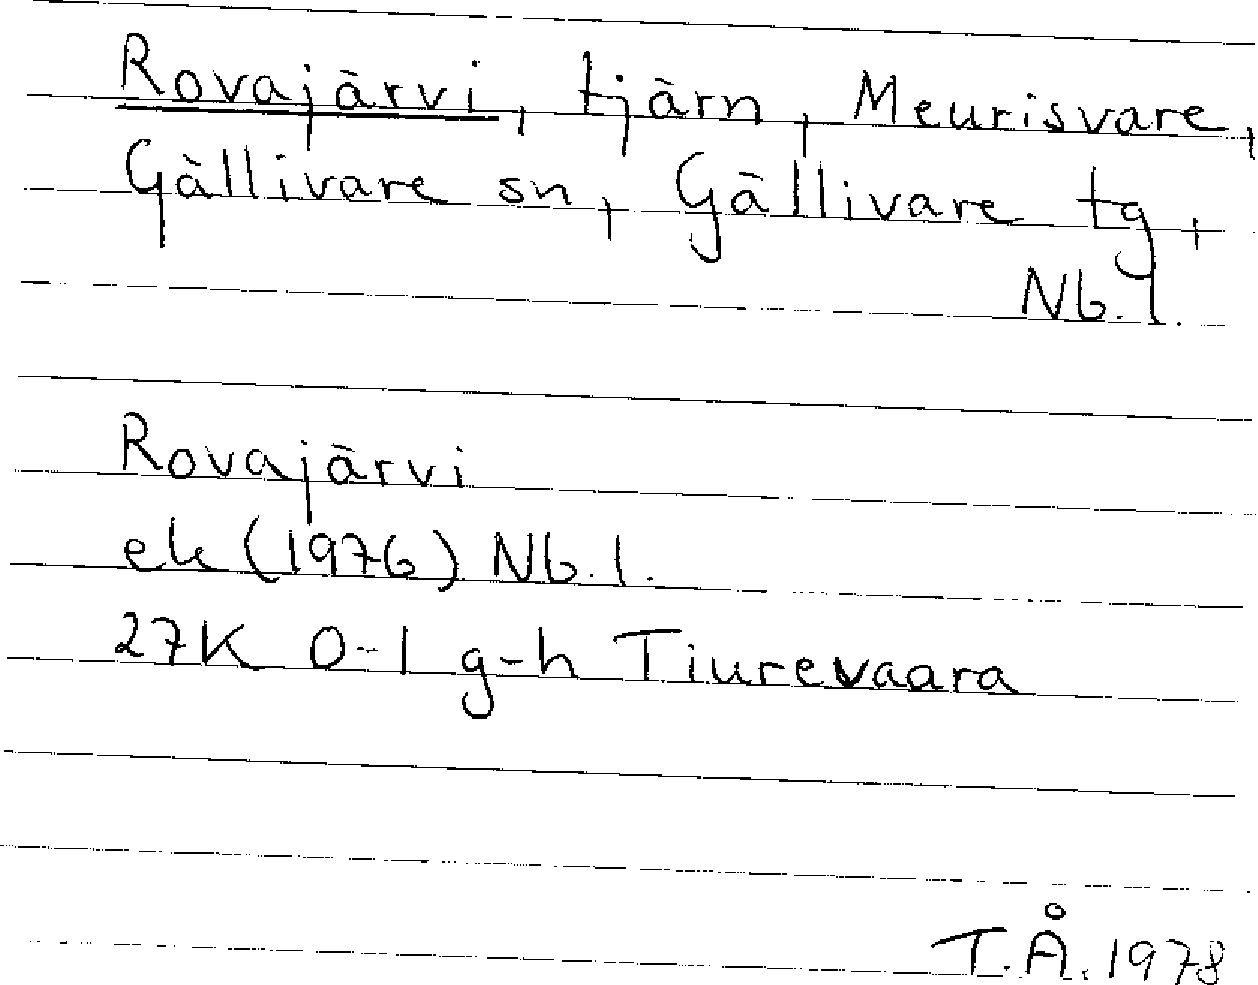 Rovajärvi, tjärn, Meurisvare,
Gällivare sn, Gällivare tg,
Nb.l.
Rovajärvi
ek (1976) Nb.l.
27K 0-1 g-h Tiurevaara
T.Å. 1978